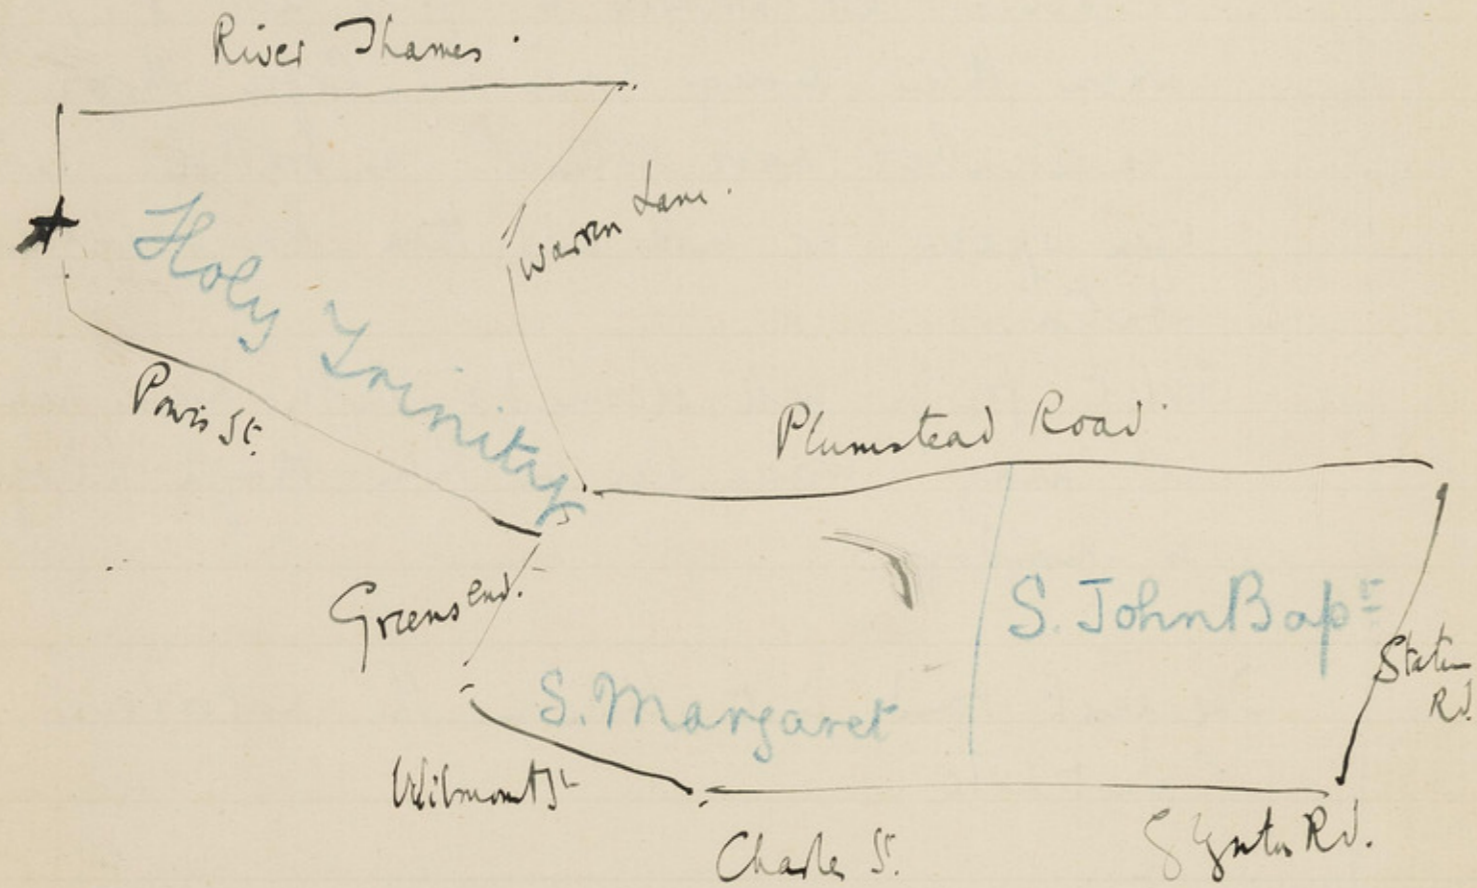 River Thames.
Warren Lane.
Holy Trinity
Powis St.
Plumstead Road
Greens End.
S. John Bapt
Station
Rd.
S. Margaret
Wilmount St
Charles St.
Rd.